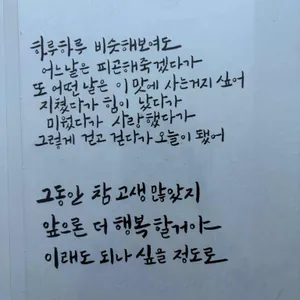 하루하루 비슷해보여도
어느날은 피곤해죽겠다가
또 어떤 날은 이 맛에 사는거지 싶어
지쳤다가 힘이 났다가
미웠다가 사랑했다가
그렇게 걷고 걷다가 오늘이 됐어
그동안 참 고생 많았지
앞으론 더 행복할거야
이래도 되나 싶을 정도로